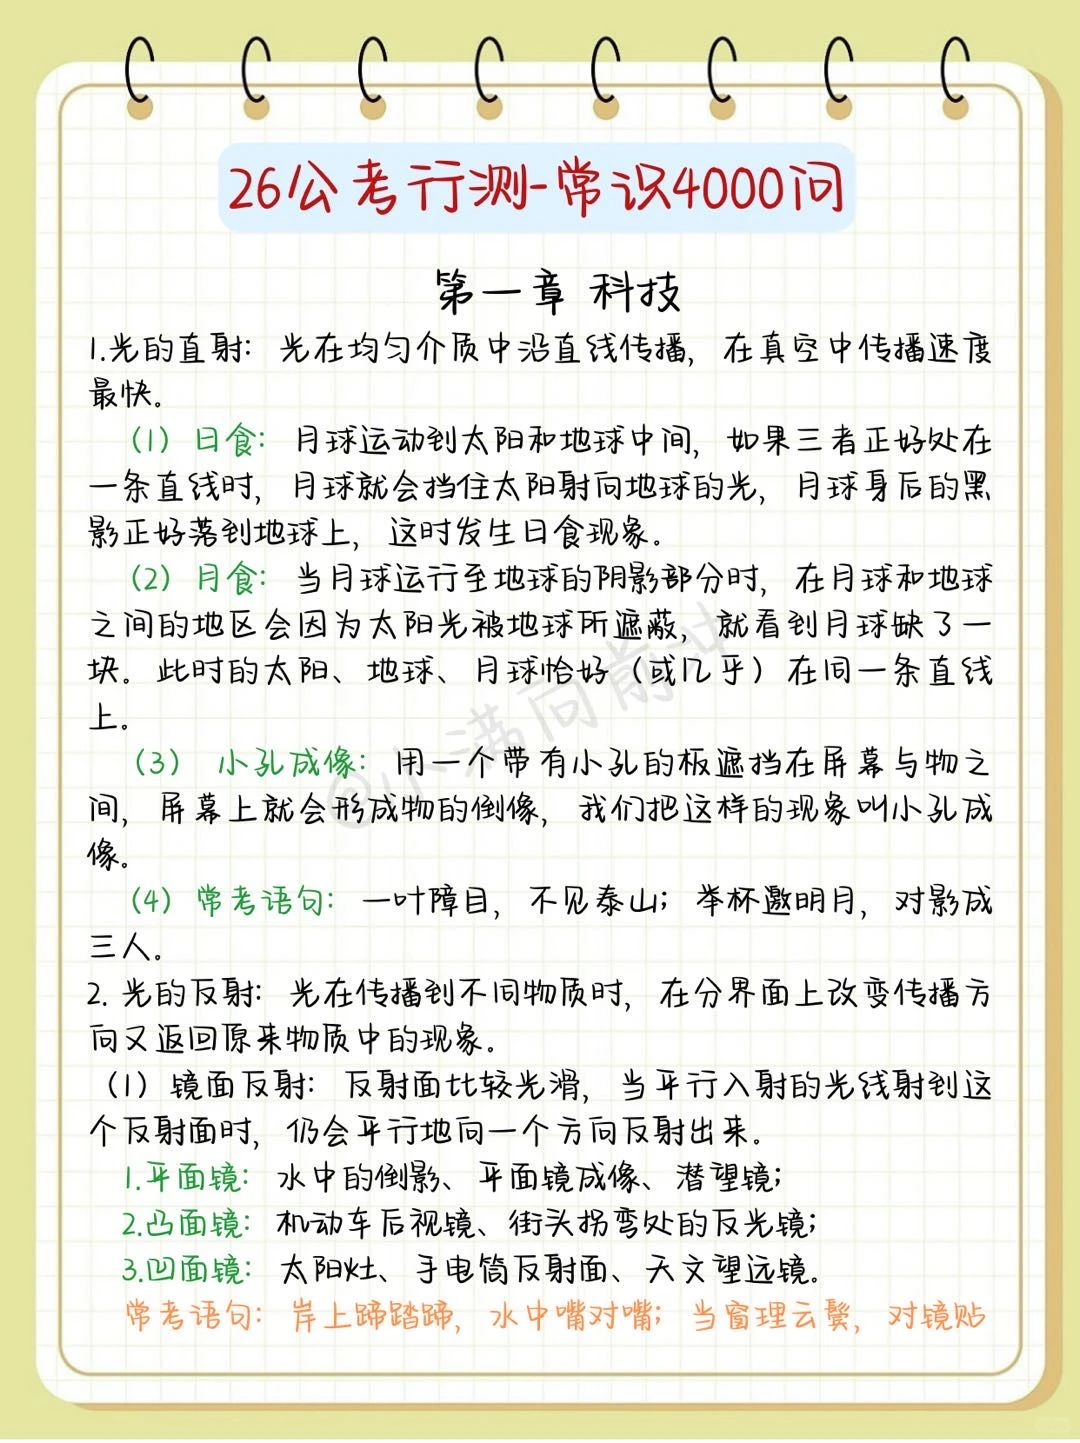 26公考行测-常识4000问
第一章 科技
1.光的直射：光在均匀介质中沿直线传播，在真空中传播速度
最快。
（1）日食：月球运动到太阳和地球中间，如果三者正好处在
一条直线时，月球就会挡住太阳射向地球的光，月球身后的黑
影正好落到地球上，这时发生日食现象。
（2）月食：当月球运行至地球的阴影部分时，在月球和地球
之间的地区会因为太阳光被地球所遮蔽，就看到月球缺了一
块。此时的太阳、地球、月球恰好（或几乎）在同一条直线
上。
（3） 小孔成像：用一个带有小孔的板遮挡在屏幕与物之
间，屏幕上就会形成物的倒像，我们把这样的现象叫小孔成
像。
（4）常考语句：一叶障目，不见泰山；举杯邀明月，对影成
三人。
2. 光的反射：光在传播到不同物质时，在分界面上改变传播方
向又返回原来物质中的现象。
（1）镜面反射：反射面比较光滑，当平行入射的光线射到这
个反射面时，仍会平行地向一个方向反射出来。
1.平面镜：水中的倒影、平面镜成像、潜望镜；
2.凸面镜：机动车后视镜、街头拐弯处的反光镜；
3.凹面镜：太阳灶、手电筒反射面、天文望远镜。
常考语句：岸上蹄踏蹄，水中嘴对嘴；当窗理云鬓，对镜贴
@小满向前冲